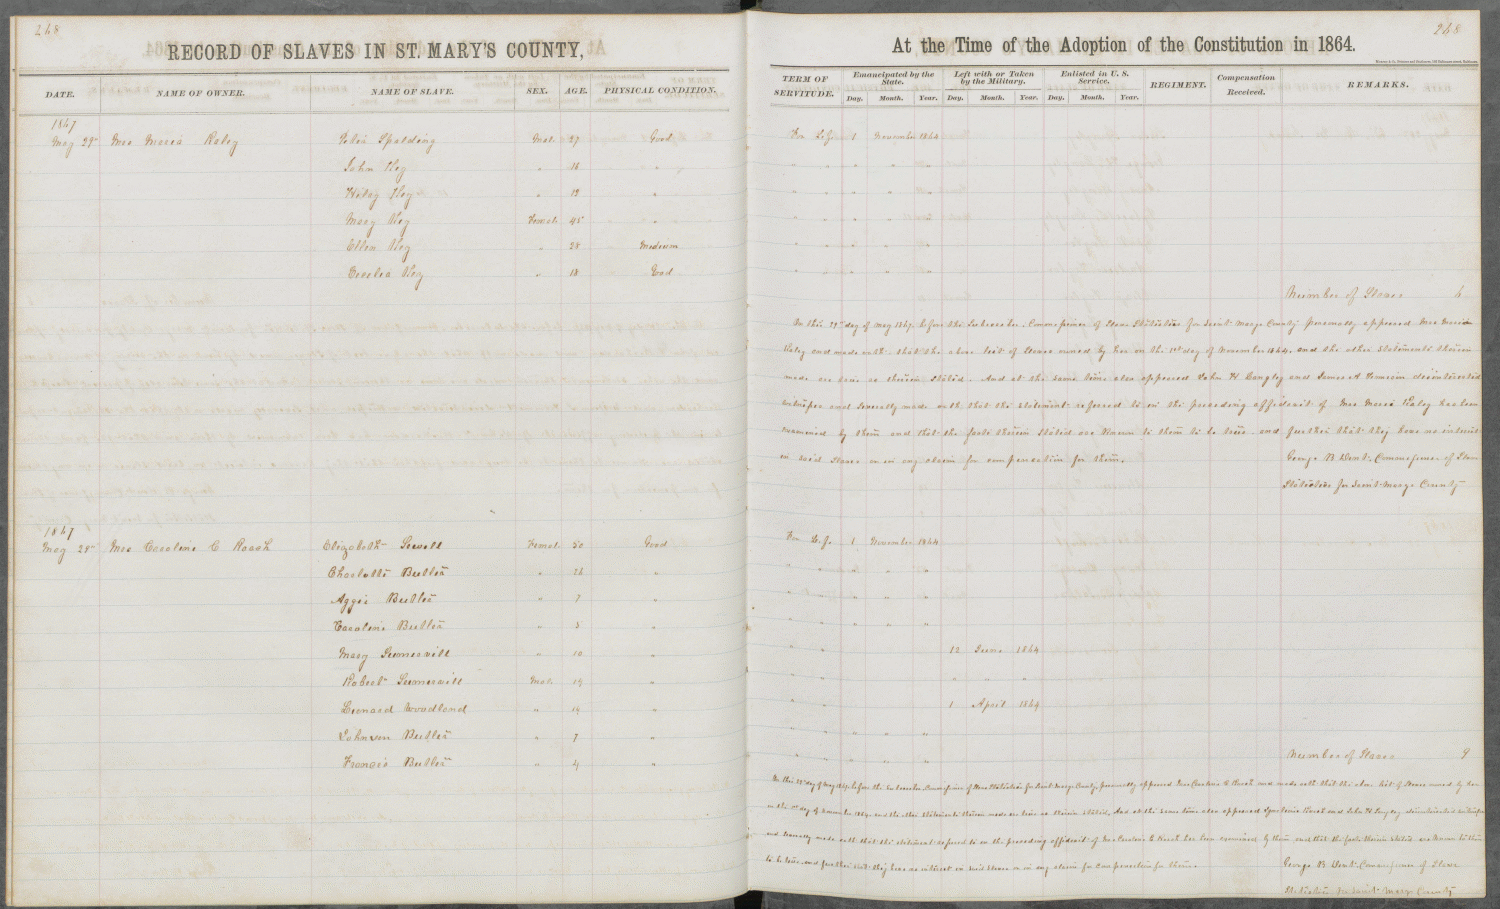 268
268
RECORD OF SLAVES IN ST. MARY'S COUNTY,
At the Time of the Adoption of the Constitution in 1864.
DATE. NAME OF OWNER. NAME OF SLAVE. SEX. AGE. PHYSICAL CONDITION.
TERM OF SERVITUDE. Emancipated by the State. Left with or Taken by the Military. Enlisted in U. S. Service. REGIMENT. Compensation Received. REMARKS.
Day. Month. Year. Day. Month. Year. Day. Month. Year.
1867
May 29" Mrs Maria Raley Spalding Mal. 27 Good For Life 1 November 1864
John Key " 16 " " " " " "
Key " 19 " " " " " "
Mary Key Femal. 45 " " " " " "
Ellen Key " 28 Medium " " " " "
Cecelia Key " 18 Good " " " " "
Number of Slaves 6
On this 29" day of May 1867. before the Subscriber, Commissioner of Slave Statistics for Saint Marys County personally appeared Mrs Maria
Raley and made oath that the above list of Slaves owned by her on the 1st day of November 1864, and the other statements therein
made are true as therein stated. And at the same time also appeared John H Langley and James A disinterested
witnesses and severally made oath that the statement referred to in the preceding affidavit of Mrs Maria Raley has been
examined by them and that the facts therein stated are known to them to be true and further that they have no interest
in said Slaves or in any claim for compensation for them. George B Dent. Commissioner of Slave
Statistics for Saint Marys County
1867
May 28" Mrs Caroline C Roach Elizabeth Sewell Femal. 50 Good For Life 1 November 1864
Charlotte Butler " 26 " " " " " "
Aggie Butler " 7 " " " " " "
Caroline Butler " 5 " " " " " "
Mary Sumervill " 10 " " " 12 June 1864
Robert Sumervill Mal. 19 " " " " " "
Leonard Woodland " 19 " " " 1 April 1864
Johnson Butler " 7 " " " " " "
Francis Butler " 4 " " " " " "
Number of Slaves 9
On this 28" day of May 1867. before the Subscriber, Commissioner of Slave Statistics for Saint Marys County, personally appeared Mrs Caroline C Roach and made oath that the above list of Slaves owned by her
on the 1st day of November 1864. and the other statements therein made are true as therein stated. And at the same time also appeared Roach and John H Langley disinterested witnesses
and severally made oath that the statement referred to in the preceding affidavit of Mrs Caroline C Roach has been examined by them and that the facts therein stated are known to them
to be true. and further that they have no interest in said Slaves or in any claim for compensation for them. George B Dent. Commissioner of Slave
Statistics for Saint Marys County